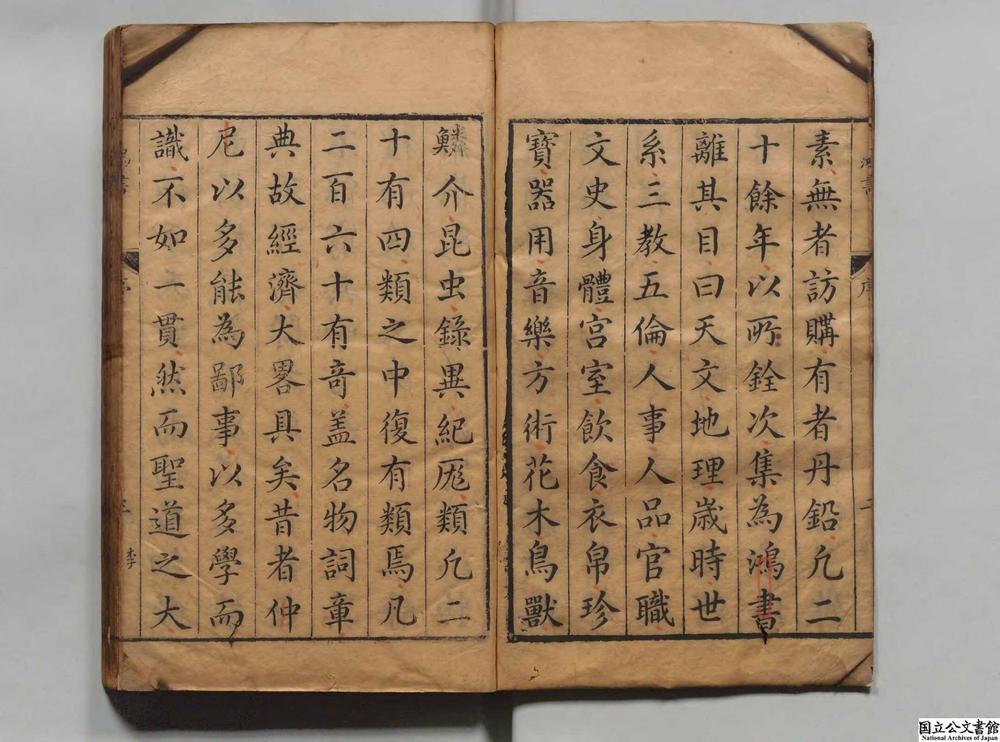 素無者訪購有者丹鉛凢二
十餘年以所銓次集為鴻書
離其目曰天文地理歲時世
系三教五倫人事人品官職
文史身體宮室飲食衣帛珍
寶器用音樂方術花木鳥獸
鱗介昆虫錄異紀厖類凢二
十有四類之中復有類焉凡
二百六十有竒盖名物詞章
典故經濟大畧具矣昔者仲
尼以多能為鄙事以多學而
識不如一貫然而聖道之大
鴻書
序
二
鴻書
序
三
国立公文書館
National Archives of Japan